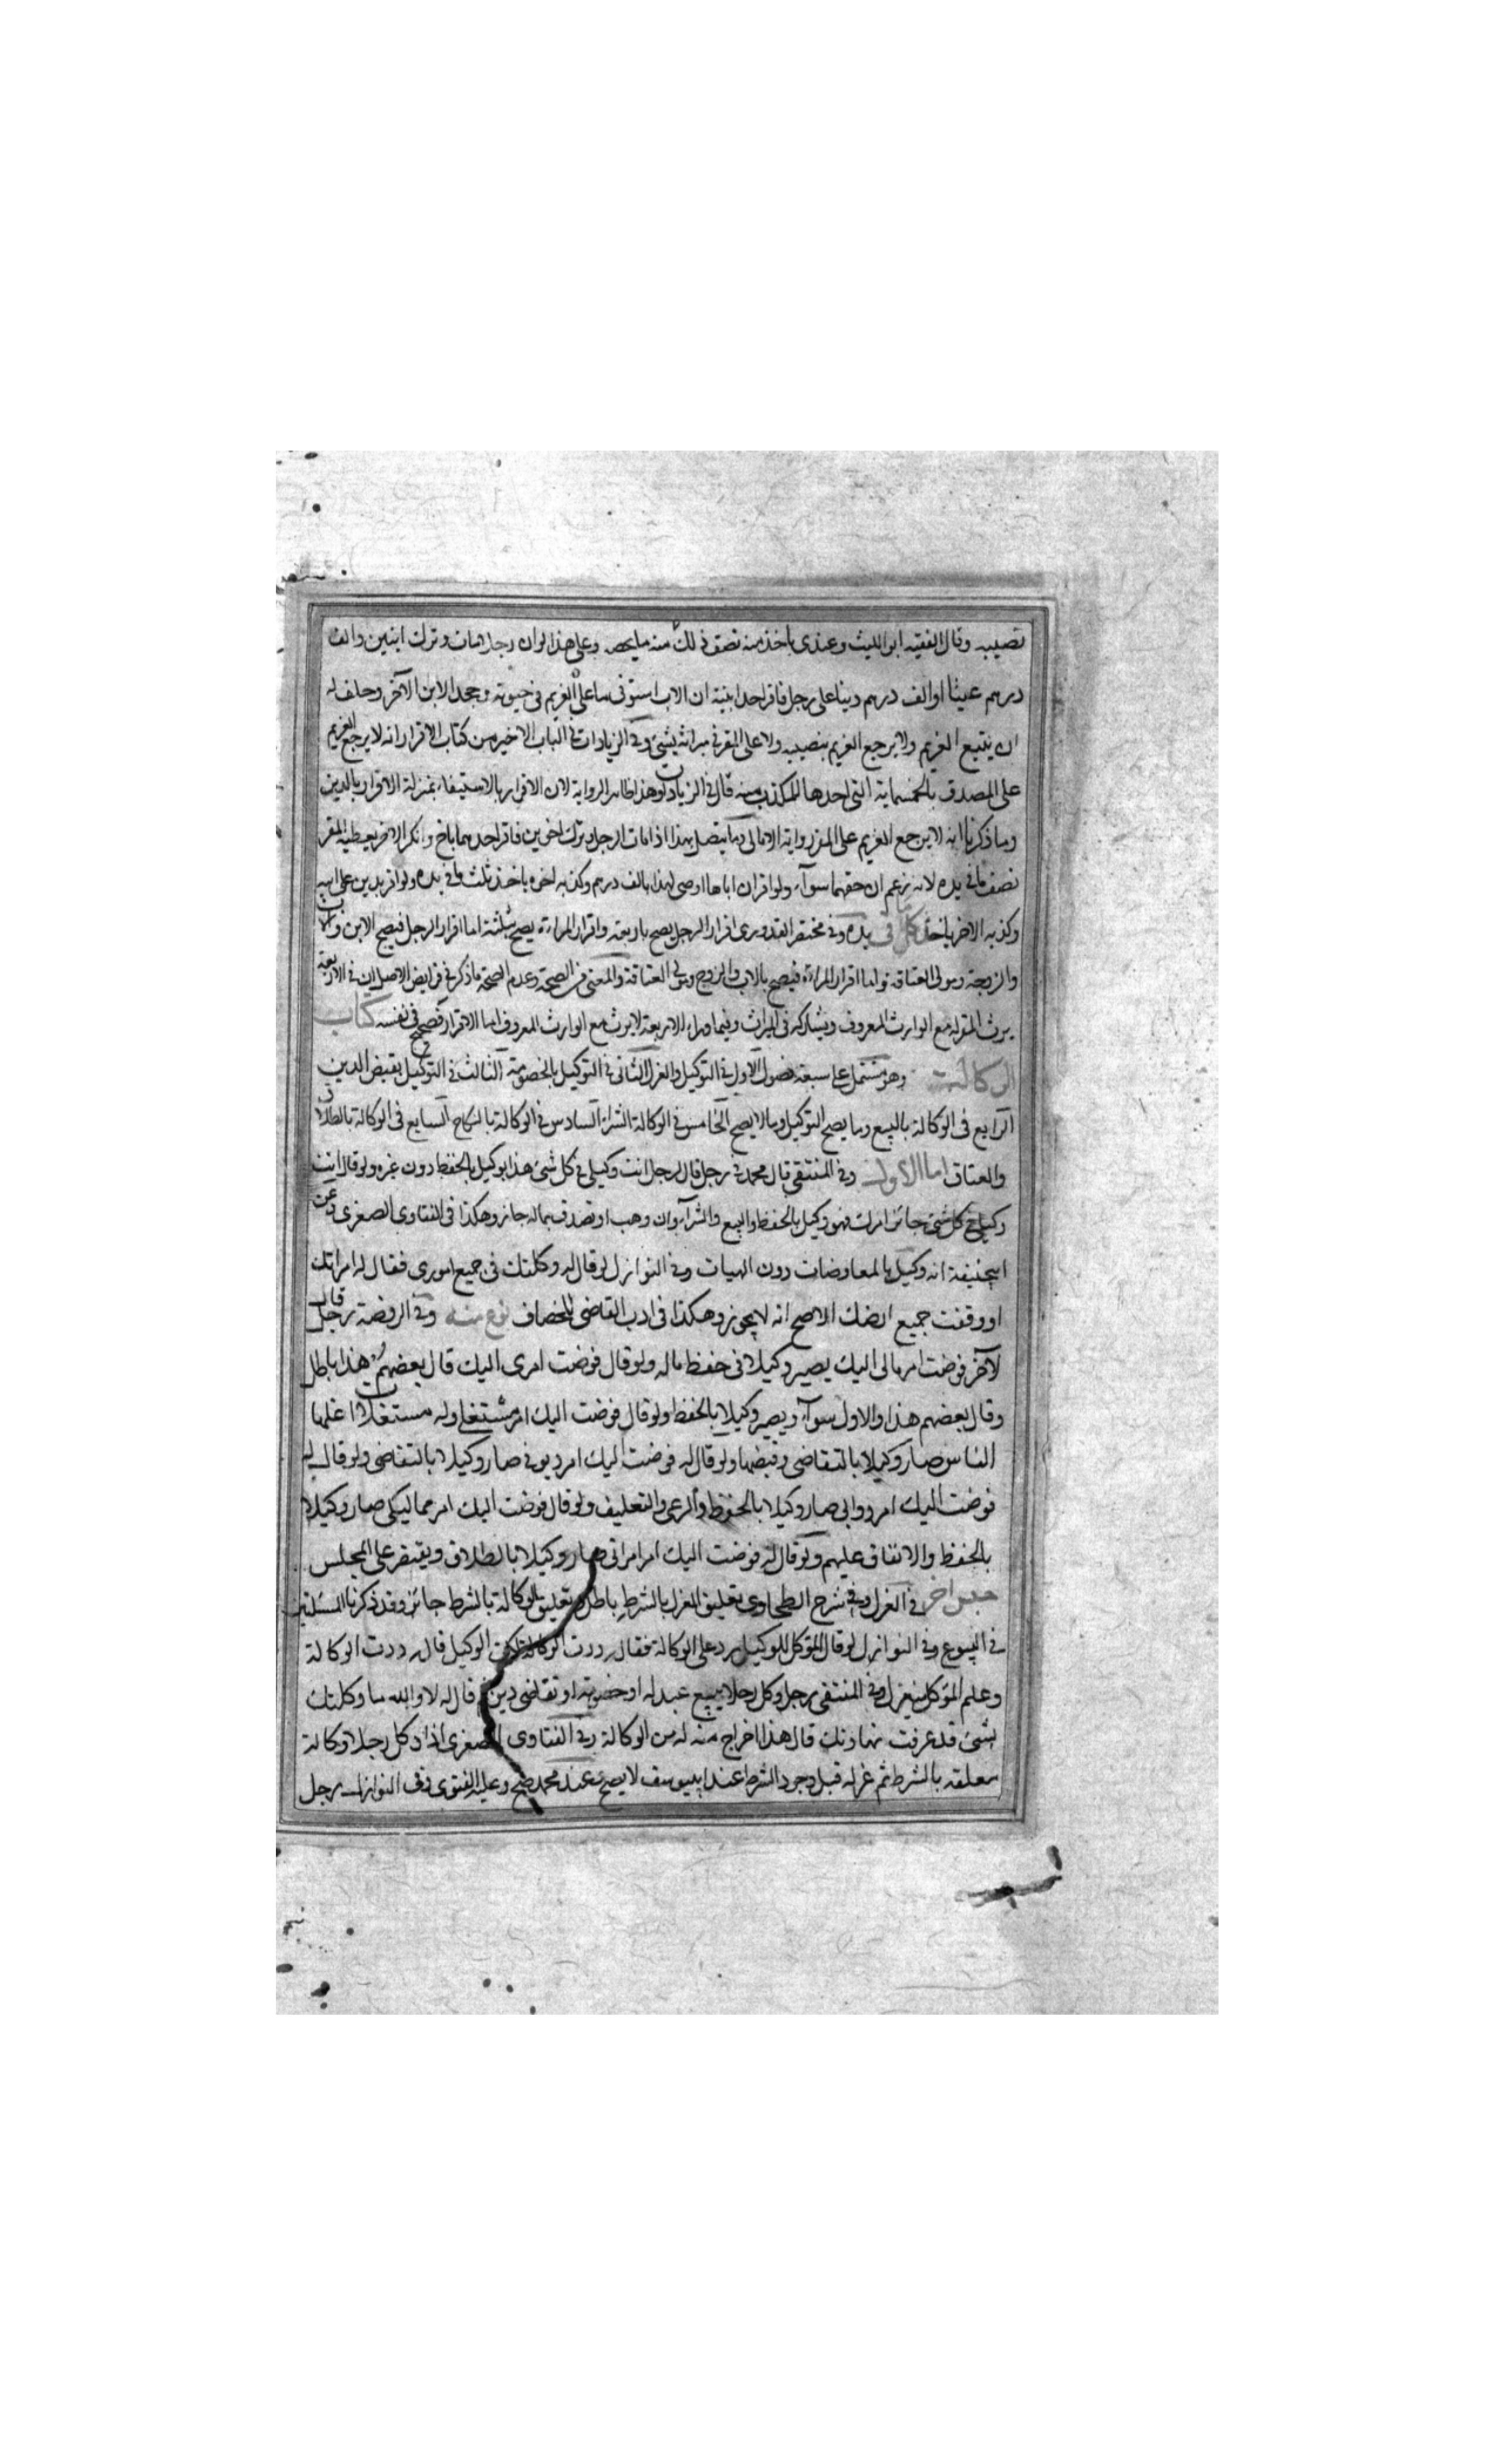 نصيبه وقال الفقيه ابو الليث وعندى ياخذ منه نصف ذلك منه ما يخصه وعلى هذا لو ان رجلا مات وترك ابنين والف
درهم عينا او الف درهم دينا على رجل فاقر احد ابنيه ان الاب استوفى ما على الغريم فى حيوته وجحد الابن الآخر وحلف له
ان يتبع الغريم ولا يرجع الغريم بنصيبه ولا على المقر فى ميراثه بشئ وفى الزيادات فى الباب الاخير من كتاب الاقرار انه لا يرجع الغريم
على المصدق بالخمسماية التى اخذها المكذب منه قال فى الزيادات وهذا ظاهر الرواية لان الاقرار بالاستيفاء بمنزلة الاقرار بالدين
وما ذكرنا انه لا يرجع الغريم على المقر رواية الامالى ومما يتصل بهذا اذا مات الرجل وترك اخوين فاقر احدهما باخ وانكر الاخر يعطيه المقر
نصف ما فى يده لانه زعم ان حقهما سوآء ولو اقر ان اباها اوصى لهذا بالف درهم وكذبه اخوه ياخذ ثلث ما فى يده ولو اقر بدين على ابيه
وكذبه الاخر ياخذ كل ما فى يده وفى مختصر القدورى اقرار الرجل يصح باربعة واقرار المراءة يصح بثلثة اما اقرار الرجل فيصح الابن والاب
والزوجة ومولى العتاقة واما اقرار المراءة فيصح بالاب والزوج ومولى العتاقة والمعنى فى الصحة وعدم الصحة ما ذكر فى فرايض الاصل ان فى الاربعة
يرث المقر له مع الوارث المعروف ويشاركه فى الميراث وفيما وراء الاربعة لا يرث مع الوارث المعروف اما الاقرار فصحيح فى نفسه كتاب
الوكالة وهو مشتمل على سبعة فصول الاول فى التوكيل والعزل الثانى فى التوكيل بالخصومة الثالث فى التوكيل بقبض الدين
الرابع فى الوكالة بالبيع وما يصح التوكيل وما لا يصح الخامس فى الوكالة الشراء السادس فى الوكالة بالنكاح السابع فى الوكالة بالطلاق
والعتاق اما الاول وفى المنتقى قال محمد فى رجل قال لرجل انت وكيلى فى كل شئ هذا توكيل بالحفظ دون غيره ولو قال انت
وكيلى فى كل شئ جائز امرك فهو وكيل بالحفظ والبيع والشرآء وان وهب او تصدق بماله جاز وهكذا فى الفتاوى الصغرى وعن
ابيحنيفة انه وكيل بالمعاوضات دون الهبات وفى النوازل لو قال له وكلتك فى جميع امورى فقال له امراتك
او وقفت جميع ارضك الاصح انه لا يجوز وهكذا فى ادب القاضى للخصاف نوع منه وفى الروضة رجل قال
لآخر فوضت امر مالى اليك يصير وكيلا فى حفظ ماله ولو قال فوضت امرى اليك قال بعضهم هذا باطل
وقال بعضهم هذا والاول سوآء ويصير وكيلا بالحفظ ولو قال فوضت اليك امر مستغلى وله مستغلات اغلها
الناس صار وكيلا بالتقاضى وقبضها ولو قال له فوضت اليك امر ديونى صار وكيلا بالتقاضى ولو قال له
فوضت اليك امر دوابى صار وكيلا بالحفظ والرعى والتعليف ولو قال فوضت اليك امر مماليكى صار وكيلا
بالحفظ والانفاق عليهم ولو قال له فوضت اليك امر امراتى صار وكيلا بالطلاق ويقتصر على المجلس
جنس اخر فى العزل وفى شرح الطحاوى تعليق العزل بالشرط باطل وتعليق الوكالة بالشرط جائز وقد ذكرنا المسئلتين
فى البيوع وفى النوازل لو قال الموكل للوكيل رد على الوكالة فقال رددت الوكالة الوكيل قال رددت الوكالة
وعلم الموكل ينعزل وفى المنتقى رجل وكل رجلا ببيع عبد له او خصومة او تقاضى دين قال له لا والله ما وكلتك
بشئ قد عرفت تهاونك قال هذا اخراج منه له من الوكالة وفى الفتاوى الصغرى اذا وكل رجلا وكالة
معلقة بالشرط ثم عزله قبل وجود الشرط عند ابييوسف لا يصح عند محمد يصح وعليه الفتوى وفى النوازل رجل